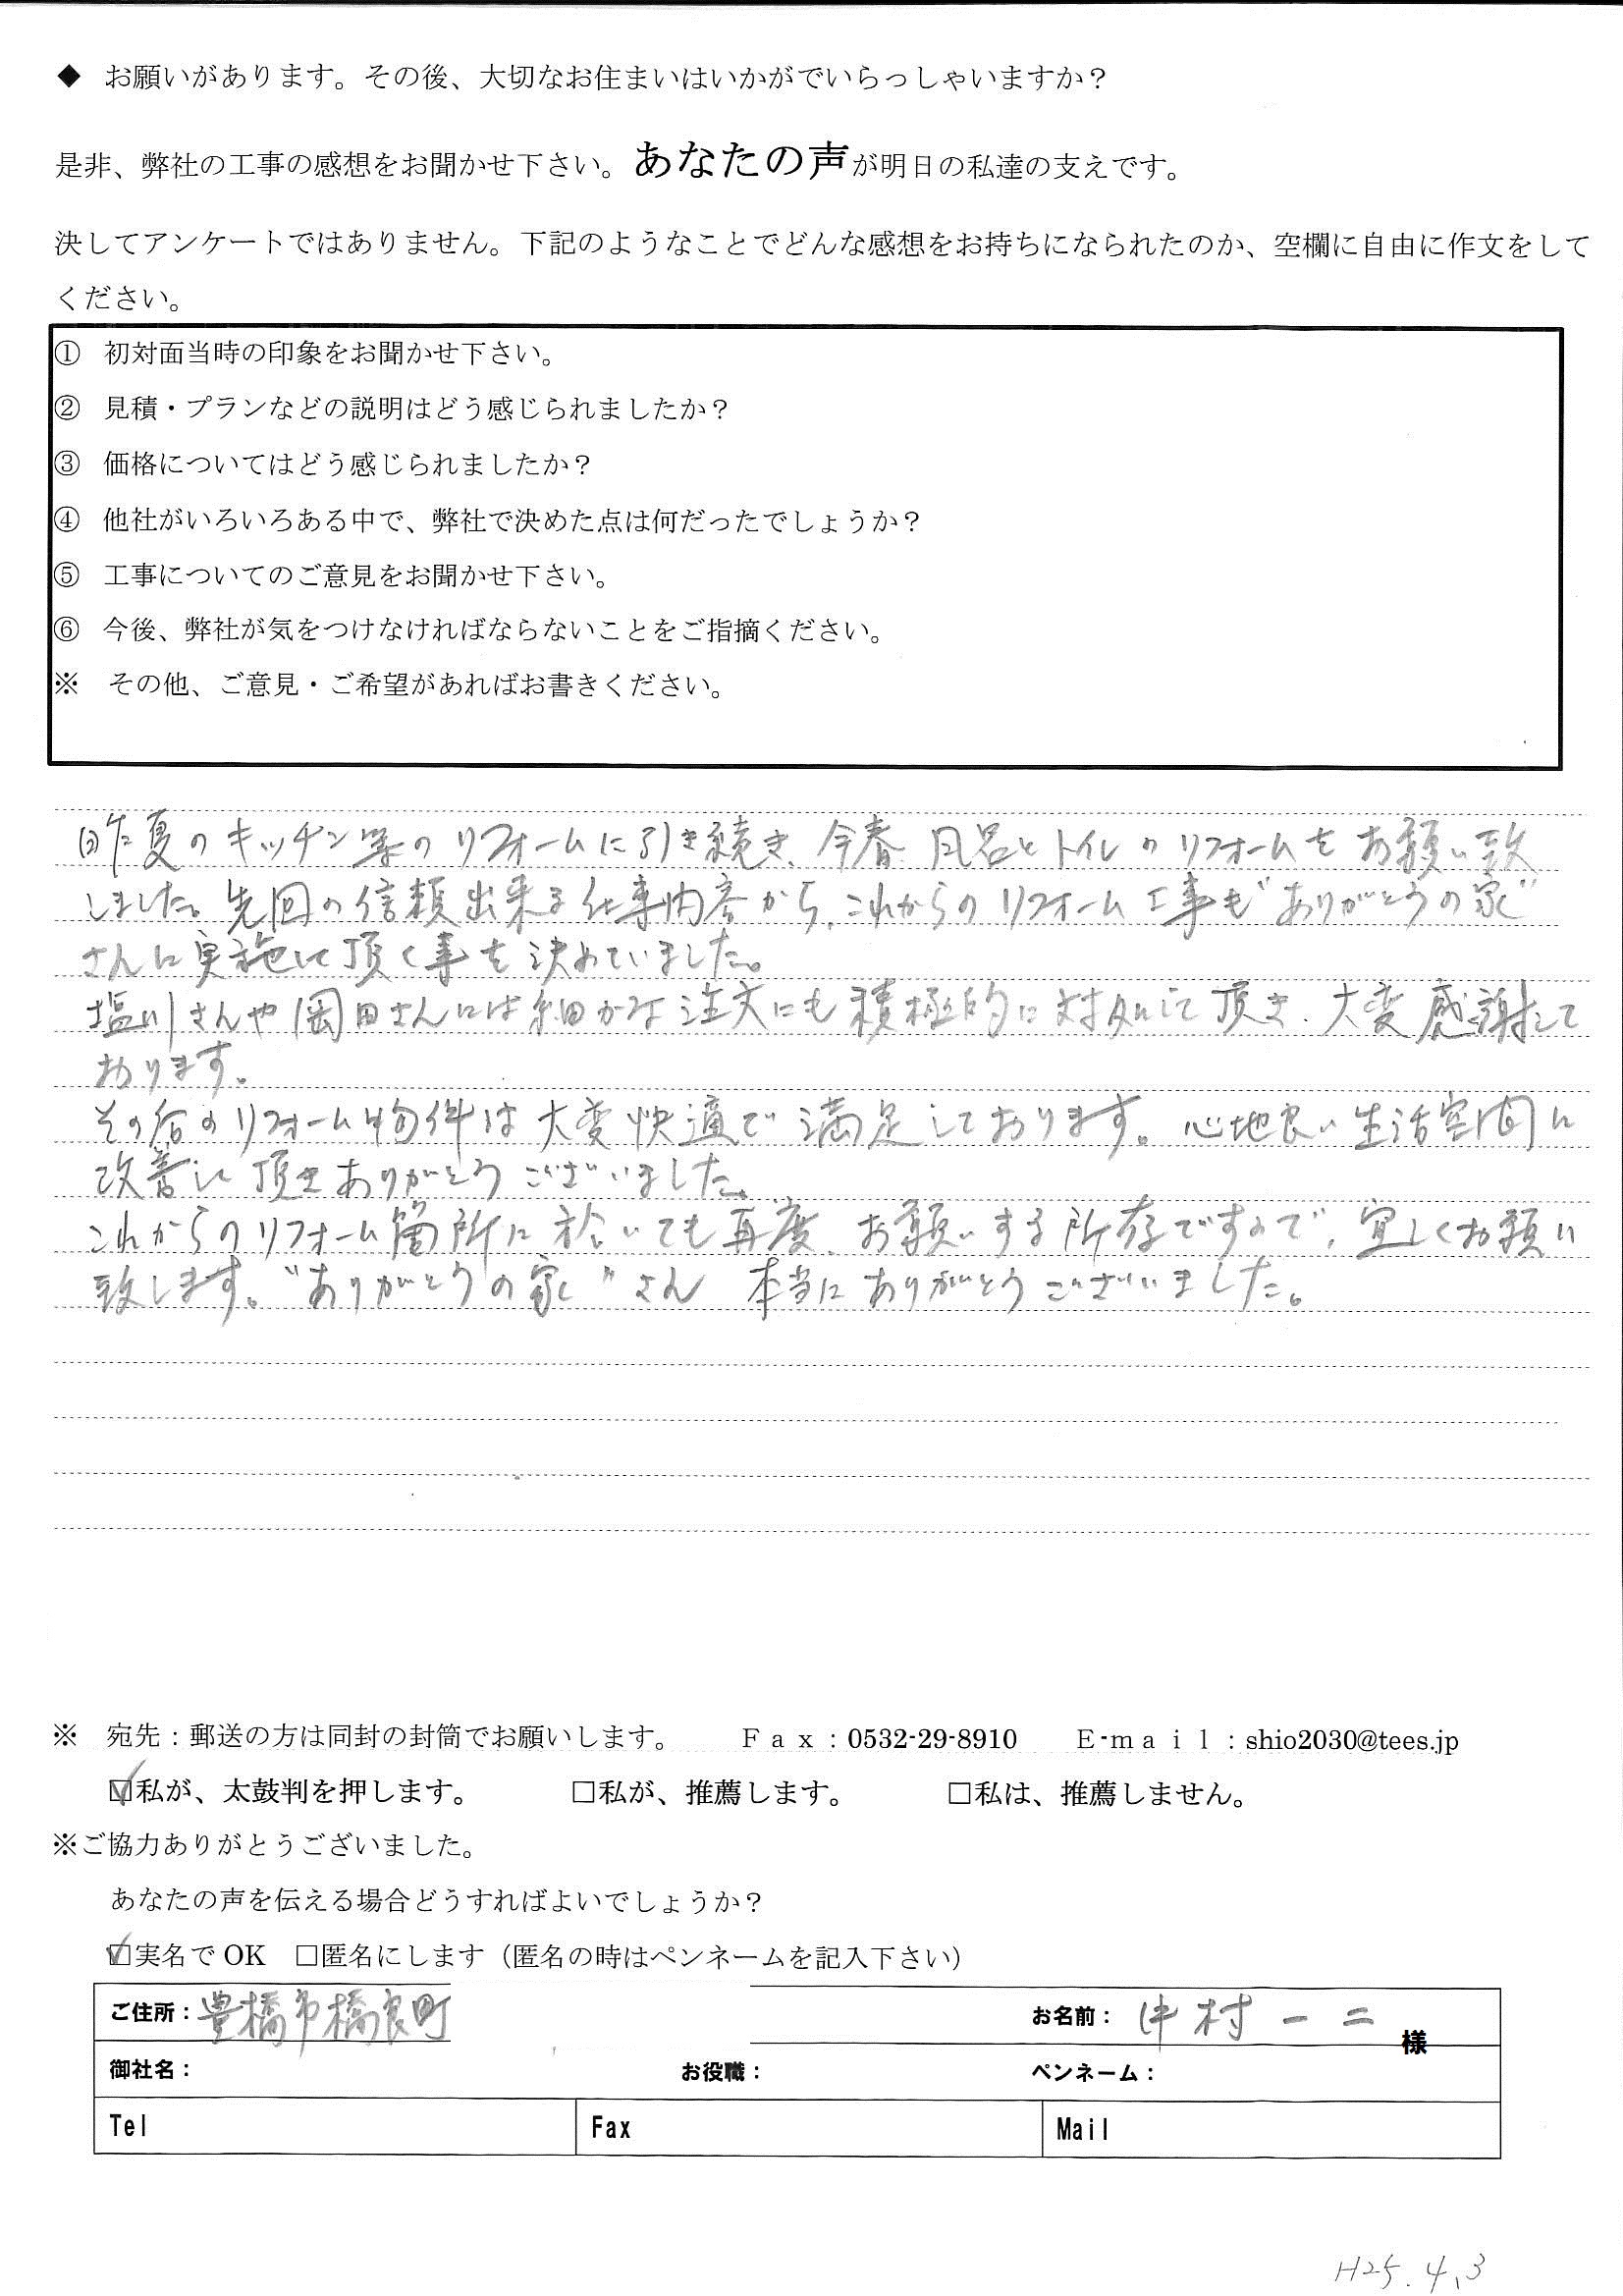 ◆ お願いがあります。その後、大切なお住まいはいかがでいらっしゃいますか？
是非、弊社の工事の感想をお聞かせ下さい。あなたの声が明日の私達の支えです。
決してアンケートではありません。下記のようなことでどんな感想をお持ちになられたのか、空欄に自由に作文をして
ください。
① 初対面当時の印象をお聞かせ下さい。
② 見積・プランなどの説明はどう感じられましたか？
③ 価格についてはどう感じられましたか？
④ 他社がいろいろある中で、弊社で決めた点は何だったでしょうか？
⑤ 工事についてのご意見をお聞かせ下さい。
⑥ 今後、弊社が気をつけなければならないことをご指摘ください。
※ その他、ご意見・ご希望があればお書きください。
昨夏のキッチン等のリフォームに引き続き、今春 風呂とトイレのリフォームをお願い致
しました。先回の信頼出来る仕事内容から、これからのリフォーム工事も"ありがとうの家"
さんに実施して頂く事を決めていました。
塩川さんや岡田さんには細かな注文にも積極的に対処して頂き、大変感謝して
おります。
その后のリフォーム物件は大変快適で満足しております。心地良い生活空間に
改善して頂きありがとうございました。
これからのリフォーム箇所に於いても再度、お願いする所存ですので、宜しくお願い
致します。"ありがとうの家"さん 本当にありがとうございました。
※ 宛先：郵送の方は同封の封筒でお願いします。 Ｆａｘ：0532-29-8910 Ｅ-ｍａｉｌ：shio2030@tees.jp
☑私が、太鼓判を押します。 □私が、推薦します。 □私は、推薦しません。
※ご協力ありがとうございました。
あなたの声を伝える場合どうすればよいでしょうか？
☑実名で OK □匿名にします（匿名の時はペンネームを記入下さい）
ご住所：豊橋市橋良町 お名前：中村一二 様
御社名： お役職： ペンネーム：
Tel Fax Mail
H25.4.3